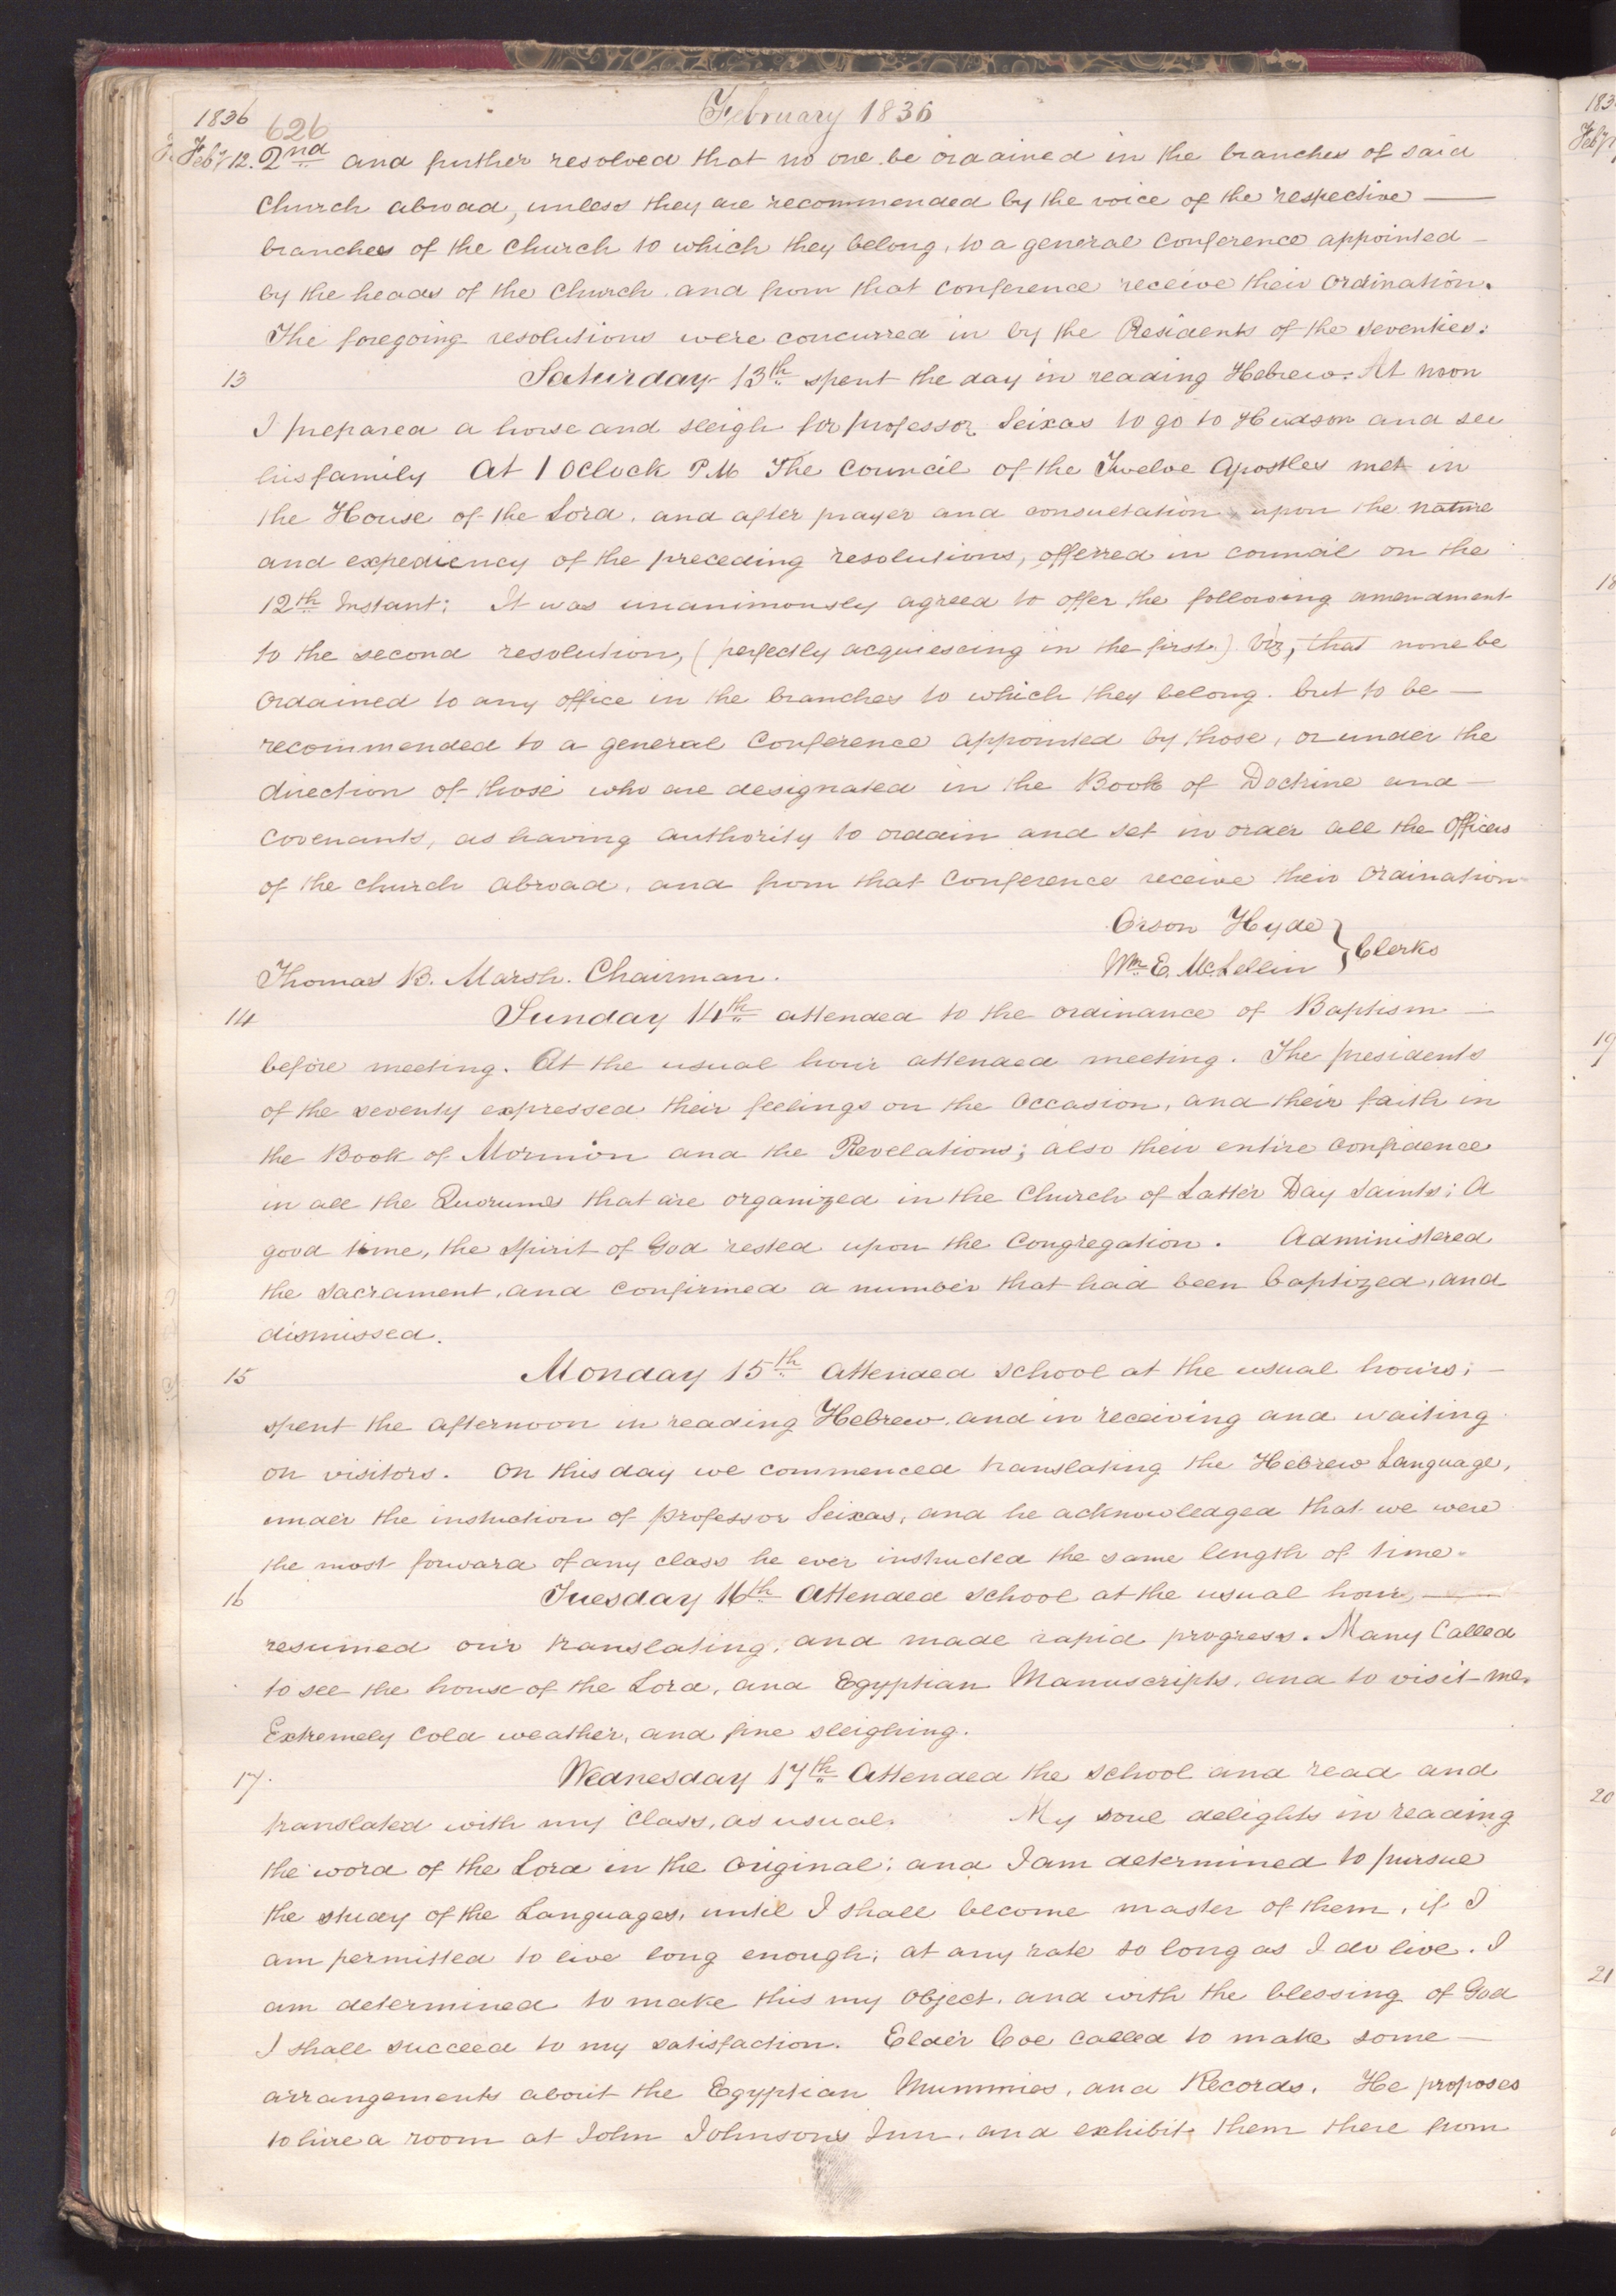 February 1836
1836
626
Feby 12. 2nd and further resolved that no one be ordained in the branches of said
Church abroad, unless they are recommended by the voice of the respective —
branches of the Church to which they belong, to a general Conference appointed —
by the heads of the Church, and from that Conference receive their Ordination.
The foregoing resolutions were concurred in by the Presidents of the seventies:
13 Saturday 13th spent the day in reading Hebrew. At noon
I prepared a horse and sleigh for professor Seixas to go to Hudson and see
his family At 1 OClock P.M. The Council of the Twelve Apostles met in
the House of the Lord, and after prayer and consultation upon the nature
and expediency of the preceding resolutions, offerred in council on the
12th Instant; It was unanimously agreed to offer the following amendment
to the second resolution, (perfectly acquiescing in the first) Viz, that none be
Ordained to any office in the branches to which they belong, but to be —
recommended to a general Conference appointed by those, or under the
direction of those who are designated in the Book of Doctrine and —
Covenants, as having authority to ordain and set in order all the Officers
of the church abroad, and from that Conference receive their Ordination
Orson Hyde
Wm. E. McLellin } Clerks
Thomas B. Marsh. Chairman.
14 Sunday 14th attended to the ordinance of Baptism —
before meeting. At the usual hour attended meeting. The presidents
of the seventy expressed their feelings on the Occasion, and their faith in
the Book of Mormon and the Revelations; also their entire confidence
in all the Quorums that are organized in the Church of Latter Day Saints; A
good time, the Spirit of God rested upon the Congregation. Administered
the Sacrament, and confirmed a number that had been baptized, and
dismissed.
15 Monday 15th Attended school at the usual hours; —
spent the afternoon in reading Hebrew, and in receiving and waiting
on visitors. On this day we commenced translating the Hebrew Language,
under the instruction of professor Seixas, and he acknowledged that we were
the most forward of any class he ever instructed the same length of time.
16 Tuesday 16th Attended School at the usual hour, —
resumed our translating, and made rapid progress. Many Called
to see the house of the Lord, and Egyptian Manuscripts, and to visit me.
Extremely cold weather, and fine sleighing.
17. Wednesday 17th Attended the school and read and
translated with my Class, as usual. My soul delights in reading
the word of the Lord in the original; and I am determined to pursue
the study of the Languages, until I shall become master of them, if I
am permitted to live long enough; at any rate so long as I do live. I
am determined to make this my object, and with the blessing of God
I shall succeed to my satisfaction. Elder Coe called to make some —
arrangements about the Egyptian Mummies, and Records. He proposes
to hire a room at John Johnson's Inn, and exhibit them there from
183
Feby
18
19
20
21